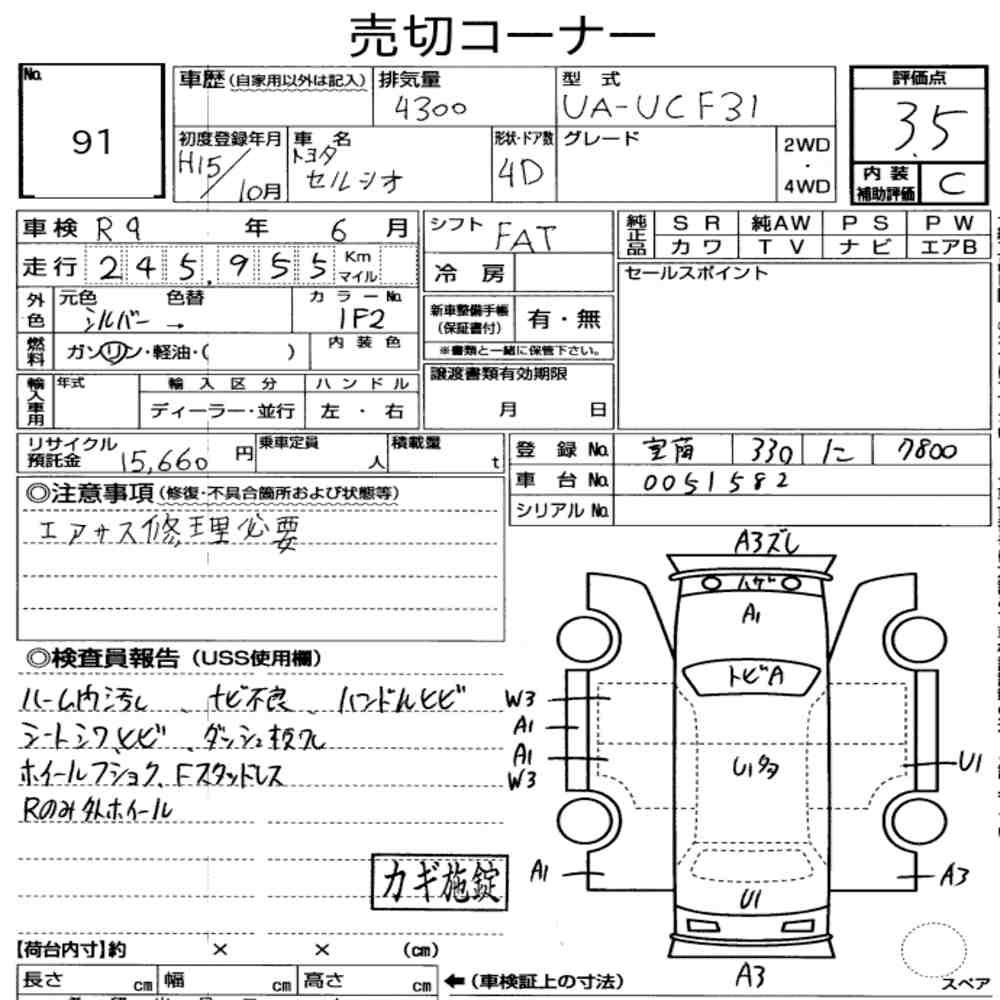 売切コーナー
No. 91
車歴(自家用以外は記入) 排気量 4300 型式 UA-UCF31
評価点 3.5
初度登録年月 H15/10月 車名 トヨタ セルシオ 形状・ドア数 4D グレード 2WD・4WD
内装補助評価 C
車検 R9年6月 シフト FAT
純正品 SR 純AW PS PW
カワ TV ナビ エアB
走行 245,955 Km マイル 冷房
セールスポイント
外色 元色 シルバー → 色替 カラーNo. 1F2
新車整備手帳(保証書付) 有・無
※書類と一緒に保管下さい。
燃料 ガソリン・軽油・( ) 内装色
輸入車用 年式 輸入区分 ハンドル
ディーラー・並行 左・右
譲渡書類有効期限
月 日
リサイクル預託金 15,660円 乗車定員 人 積載量 t
登録No. 室蘭 330 に 7800
車台No. 0051582
シリアルNo.
◎注意事項(修復・不具合箇所および状態等)
エアサス修理必要
◎検査員報告(USS使用欄)
ルーム内汚れ、ナビ不良、ハンドルヒビ
シートシワ、ヒビ、ダッシュ板クレ
ホイールフショク、Fスタッドレス
Rのみ外ホイール
カギ施錠
A3ズレ
ハゲ
A1
トビA
W3
A1
A1
W3
U1多
U1
A1
A3
U1
A3
スペア
【荷台内寸】約 × × (cm)
長さ cm 幅 cm 高さ cm
←(車検証上の寸法)